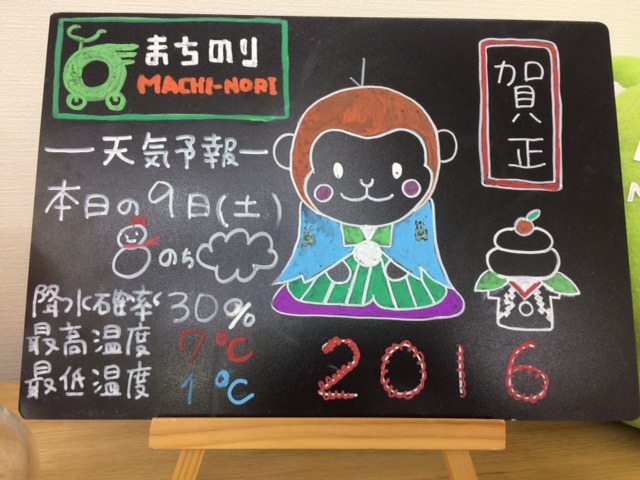 まちのり
MACHI-NORI
賀正
ー天気予報ー
本日の9日(土)
のち
降水確率 30%
最高温度 7℃
最低温度 1℃
2016